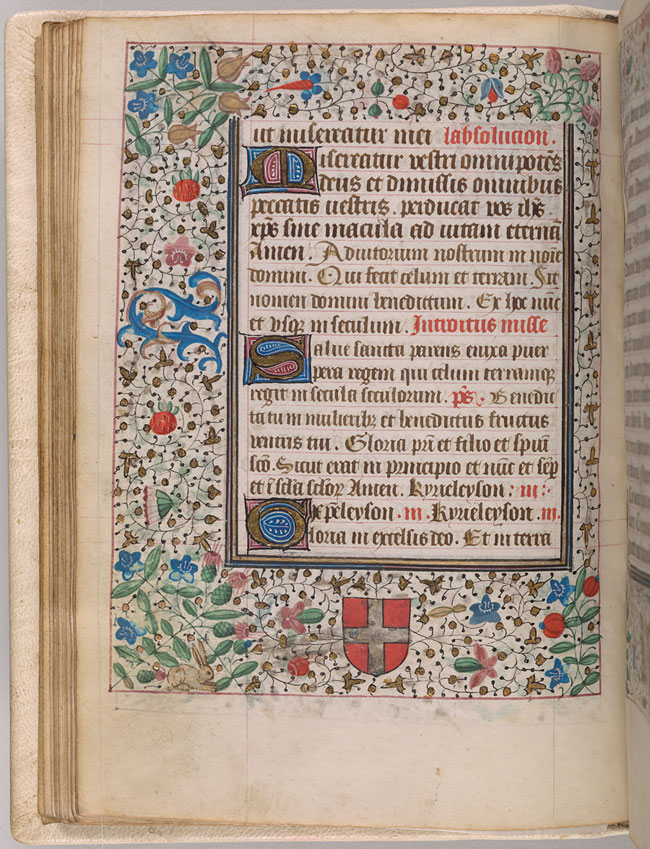 ut misereatur mei labsolucion.
Misereatur vestri omnipotēs
deus et dimissis omnibus
peccatis vestris. perducat vos ihūs
xp̄s sine macula ad vitam eternā
Amen. Adiutorium nostrum in noīe
domini. Qui fecit celum et terram. Sit
nomen domini benedictum. Ex hoc nūc
et vsqꝫ in seculum. Introitus misse
Salue sancta parens enixa puer
pera regem qui celum terramqꝫ
regit in secula seculorum. p̄s. Benedic
ta tu in mulieribꝫ et benedictus fructus
ventris tui. Gloria pr̄i et filio et spūi
scō. Sicut erat in principio et nūc et sēp
et ī sc̄la sclōꝝ Amen. Kyrieleyson: iii:
Xpēleyson. iii. Kyrieleyson. iii.
Gloria in excelsis deo. Et in terra